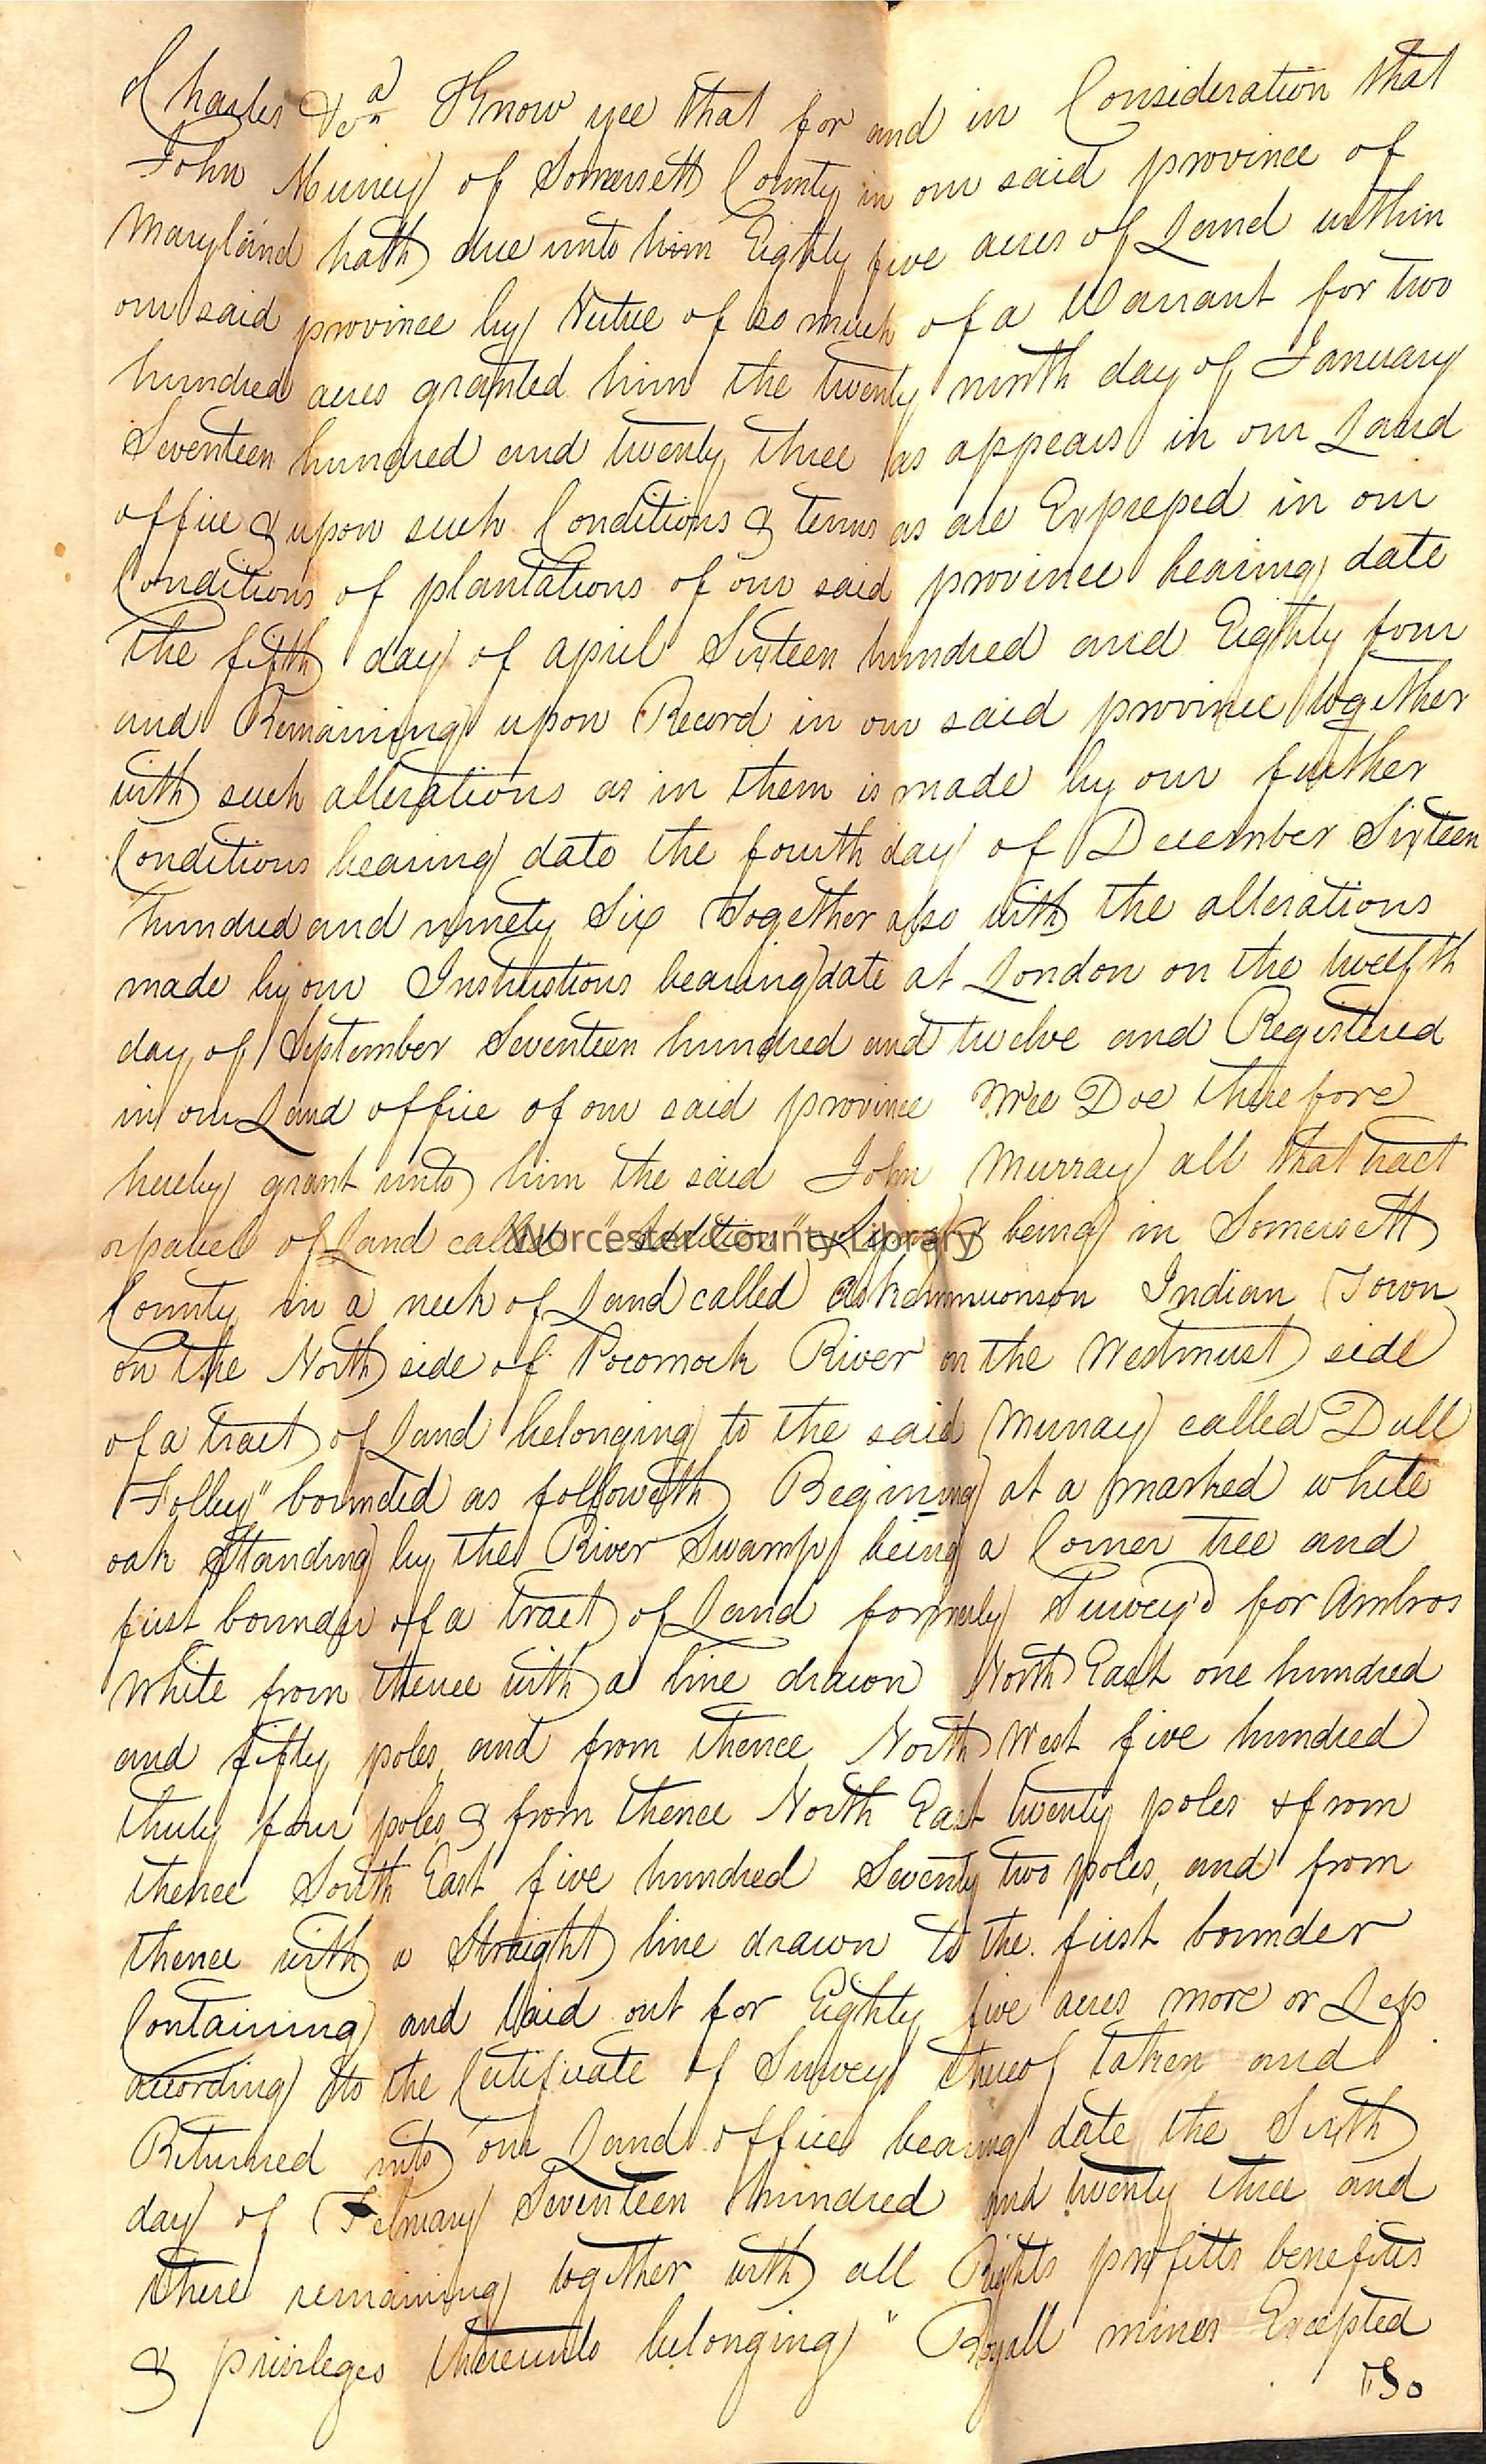 Charles &ca Know yee that for and in Consideration that
John Murrey of Somersett County in our said province of
Maryland hath due unto him Eighty five acres of Land within
our said province by Virtue of so much of a Warrant for two
hundred acres granted him the twenty ninth day of January
Seventeen hundred and twenty three as appears in our Land
office & upon such Conditions & terms as are Expressed in our
Conditions of plantations of our said province bearing date
the fifth day of april Sixteen hundred and Eighty four
and Remaining upon Record in our said province together
with such alterations as in them is made by our further
Conditions bearing date the fourth day of December Sixteen
hundred and ninety Six Together also with the alterations
made by our Instructions bearing date at London on the twelfth
day of September Seventeen hundred and twelve and Registered
in our Land office of our said province Wee Doe therefore
hereby grant unto him the said John Murray all that tract
or parcel of Land called "Addition" Lying & being in Somersett
Worcester County Library
County in a neck of Land called Askemmuonson Indian Town
on the North side of Pocomock River on the Westmust side
of a tract of Land belonging to the said Murray called Dull
Folley" bounded as followeth Begining at a marked white
oak Standing by the River Swamp being a Corner tree and
first bounder of a tract of Land formerly Survey'd for Ambros
White from thence with a line drawn North East one hundred
and fifty poles, and from thence North West five hundred
thirty four poles & from thence North East twenty poles & from
thence South East five hundred Seventy two poles, and from
thence with a Straight line drawn to the first bounder
Containing and laid out for Eighty five acres more or Less
according to the Certificate of Survey thereof taken and
Returned into our Land office bearing date the Sixth
day of February Seventeen hundred and twenty three and
there remaining together with all Rights profitts benefitts
& privileges thereunto belonging" Royall mines Excepted
"To